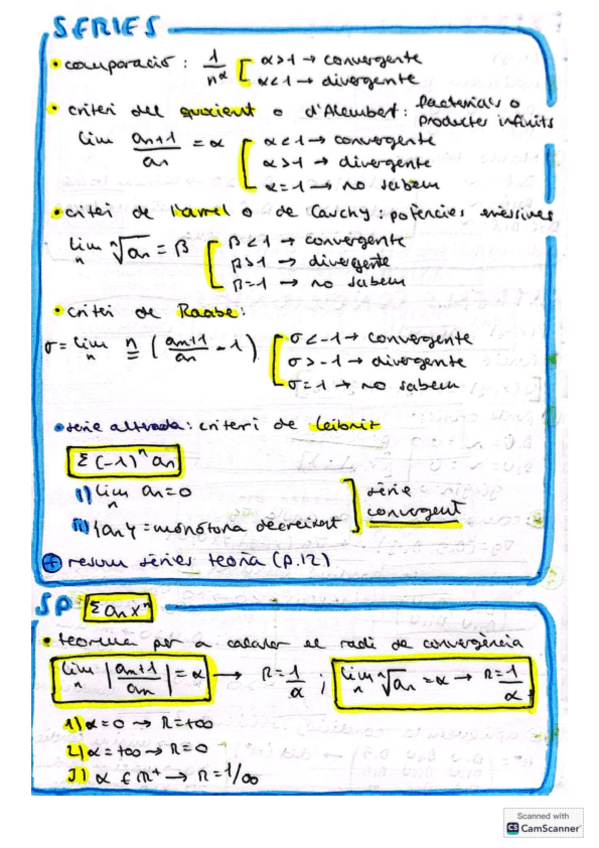 SERIES
• comparació: 1/n^α [ α>1 → convergente
α<1 → divergente
• criteri del quocient o d'Alembert: factorials o
productes infinits
lim an+1/an = α [ α<1 → convergente
α>1 → divergente
α=1 → no sabem
• criteri de l'arrel o de Cauchy: potències
lim n ⁿ√an = β [ β<1 → convergente
β>1 → divergente
β=1 → no sabem
• criteri de Raabe:
σ = lim n n (an+1/an - 1) [ σ<-1 → convergente
σ>-1 → divergente
σ=1 → no sabem
• sèrie alterada: criteri de Leibnit
Σ(-1)ⁿ an
i) lim n an=0
ii) {an} = monótona decreixent
] sèrie
convergent
+ resum sèries teoria (p.12)
SP Σ an xⁿ
• teorema per a calcular el radi de convergència
lim n |an+1/an| = α → R = 1/α ; lim n ⁿ√an = α → R = 1/α
1) α=0 → R=+∞
2) α=+∞ → R=0
3) α ∈ R⁺ → R=1/∞
Scanned with
CS CamScanner